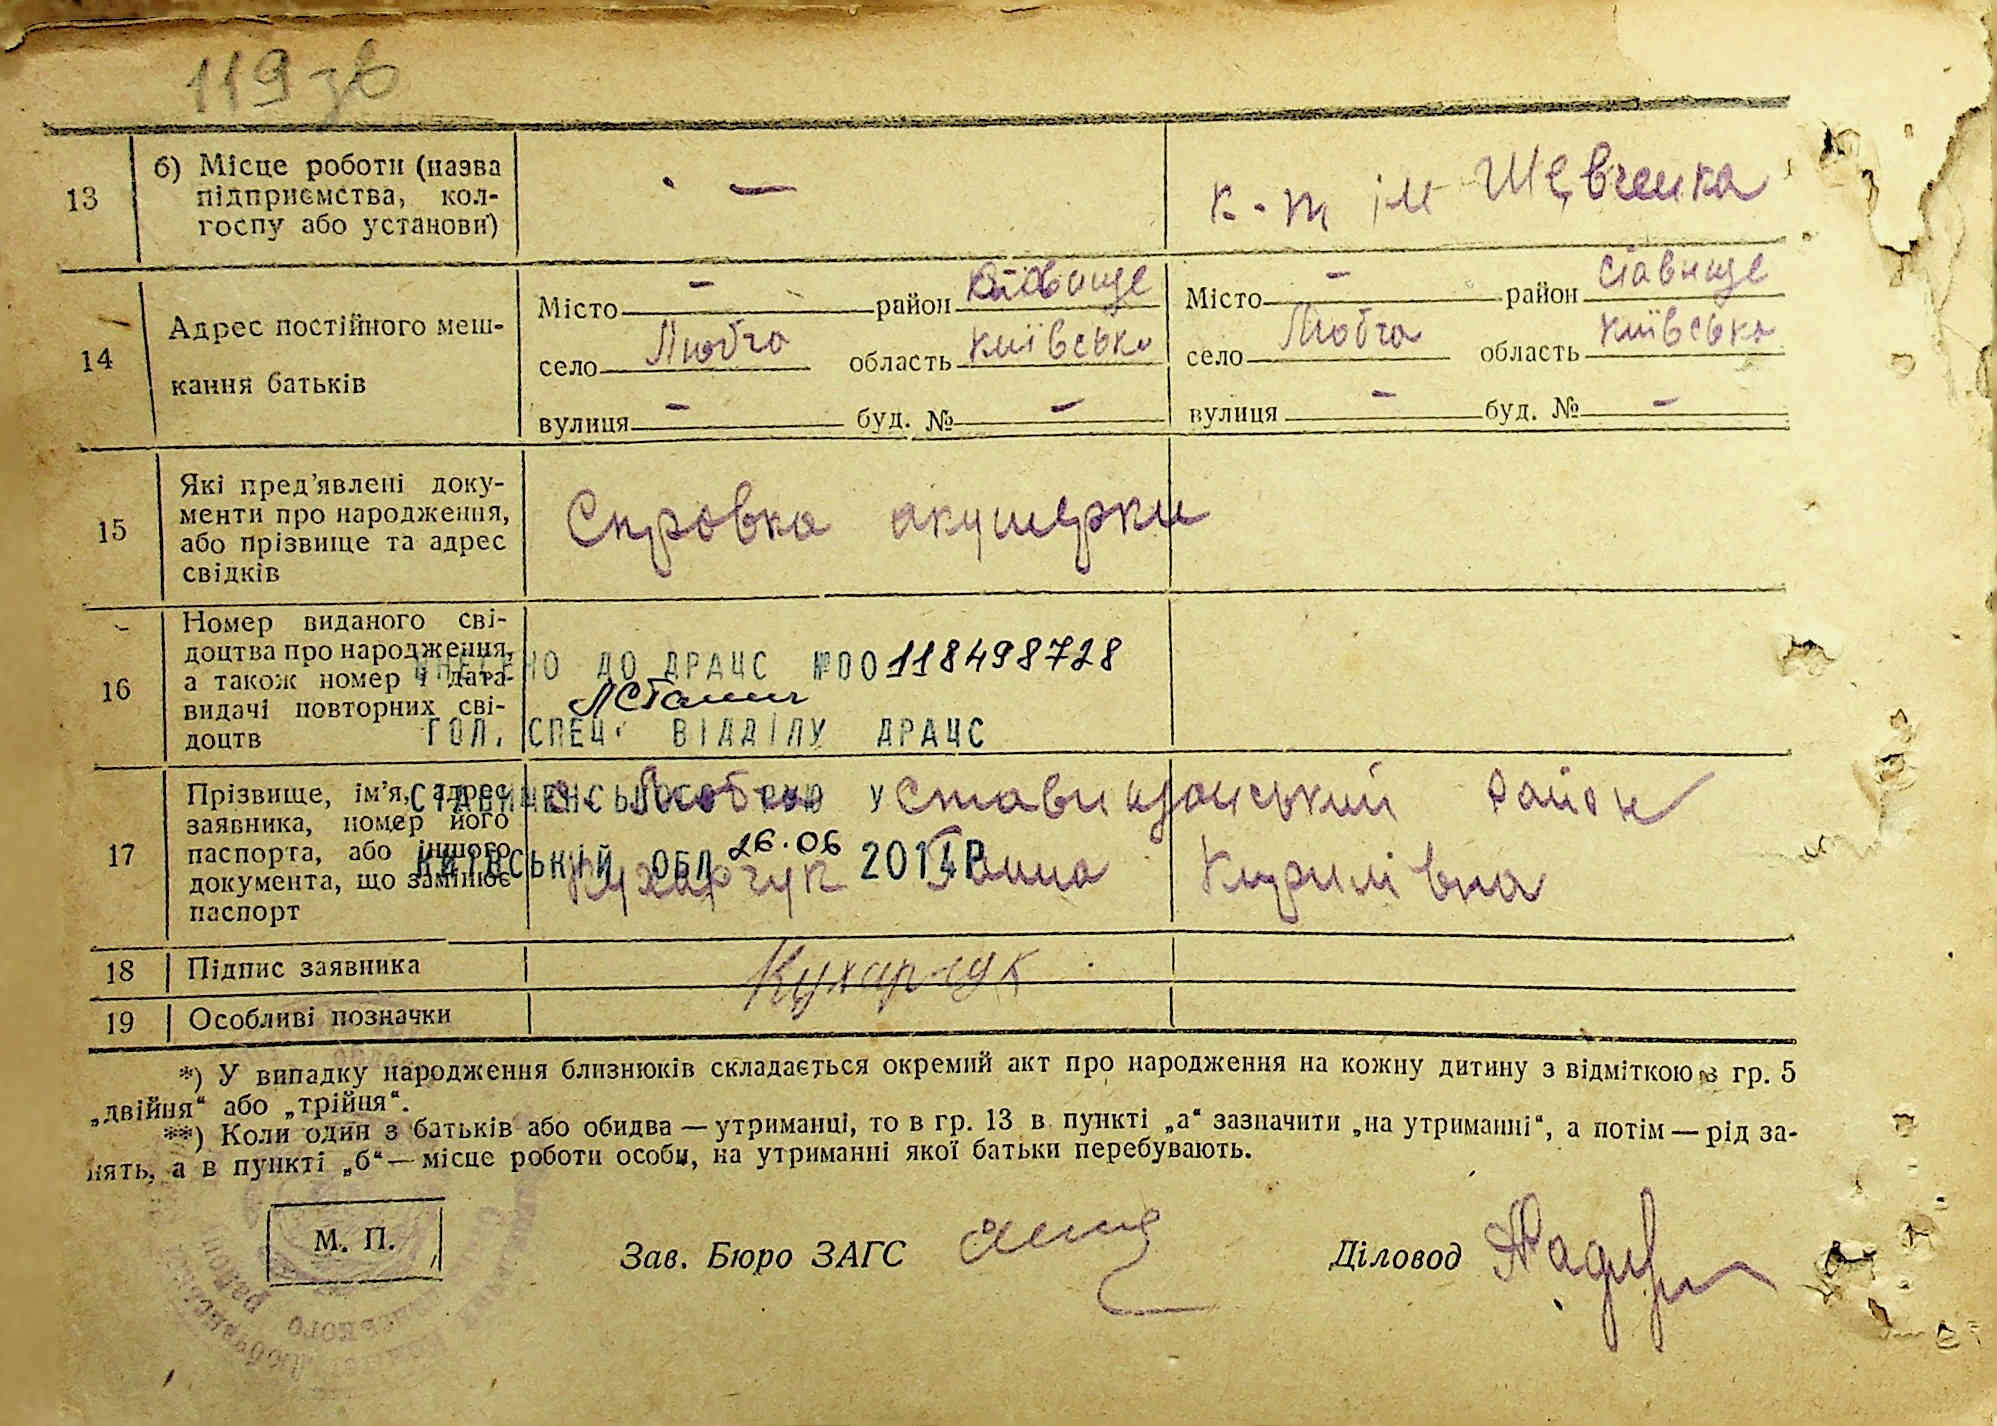 119 зв
13 б) Місце роботи (назва підприємства, колгоспу або установи) — к-п ім Шевченка
14 Адрес постійного мешкання батьків
Місто — район
село Любча область Київська
вулиця — буд. № —
Місто — район Ставище
село Любча область Київська
вулиця — буд. № —
15 Які пред'явлені документи про народження, або прізвище та адрес свідків
Справка акушерки
16 Номер виданого свідоцтва про народження, а також номер і дата видачі повторних свідоцтв
ВНЕСЕНО ДО ДРАЦС №00118498728
ГОЛ. СПЕЦ. ВІДДІЛУ ДРАЦС
СТАВИЩЕНСЬКОГО РУЮ У
КИЇВСЬКІЙ ОБЛ 26.06 2014Р
17 Прізвище, ім'я, адрес заявника, номер його паспорта, або іншого документа, що замінює паспорт
с. Любча Ставищанський район
Кухарчук Ганна Кирилівна
18 Підпис заявника Кухарчук
19 Особливі позначки
*) У випадку народження близнюків складається окремий акт про народження на кожну дитину з відміткою в гр. 5
„двійня“ або „трійня“.
**) Коли один з батьків або обидва — утриманці, то в гр. 13 в пункті „а“ зазначити „на утриманні“, а потім — рід за-
нять, а в пункті „б“ — місце роботи особи, на утриманні якої батьки перебувають.
М. П.
Зав. Бюро ЗАГС
Діловод